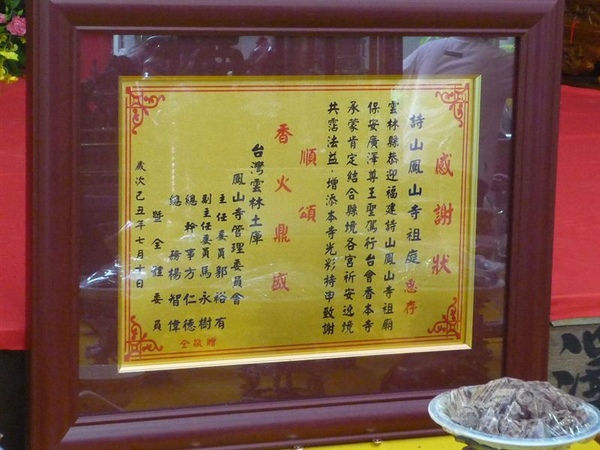 感謝狀
詩山鳳山寺祖庭 惠存
雲林縣恭迎福建詩山鳳山寺祖廟
保安廣澤尊王聖駕行台會香本寺
承蒙肯定結合縣境各宮祈安遶境
共霑法益，增添本寺光彩特申致謝
順頌
香火鼎盛
台灣雲林土庫
鳳山寺管理委員會
主任委員郭裕有
副主任委員馬永樹
總幹事方仁德
總務楊智偉
暨全體委員
仝敬贈
歲次己丑年七月十日